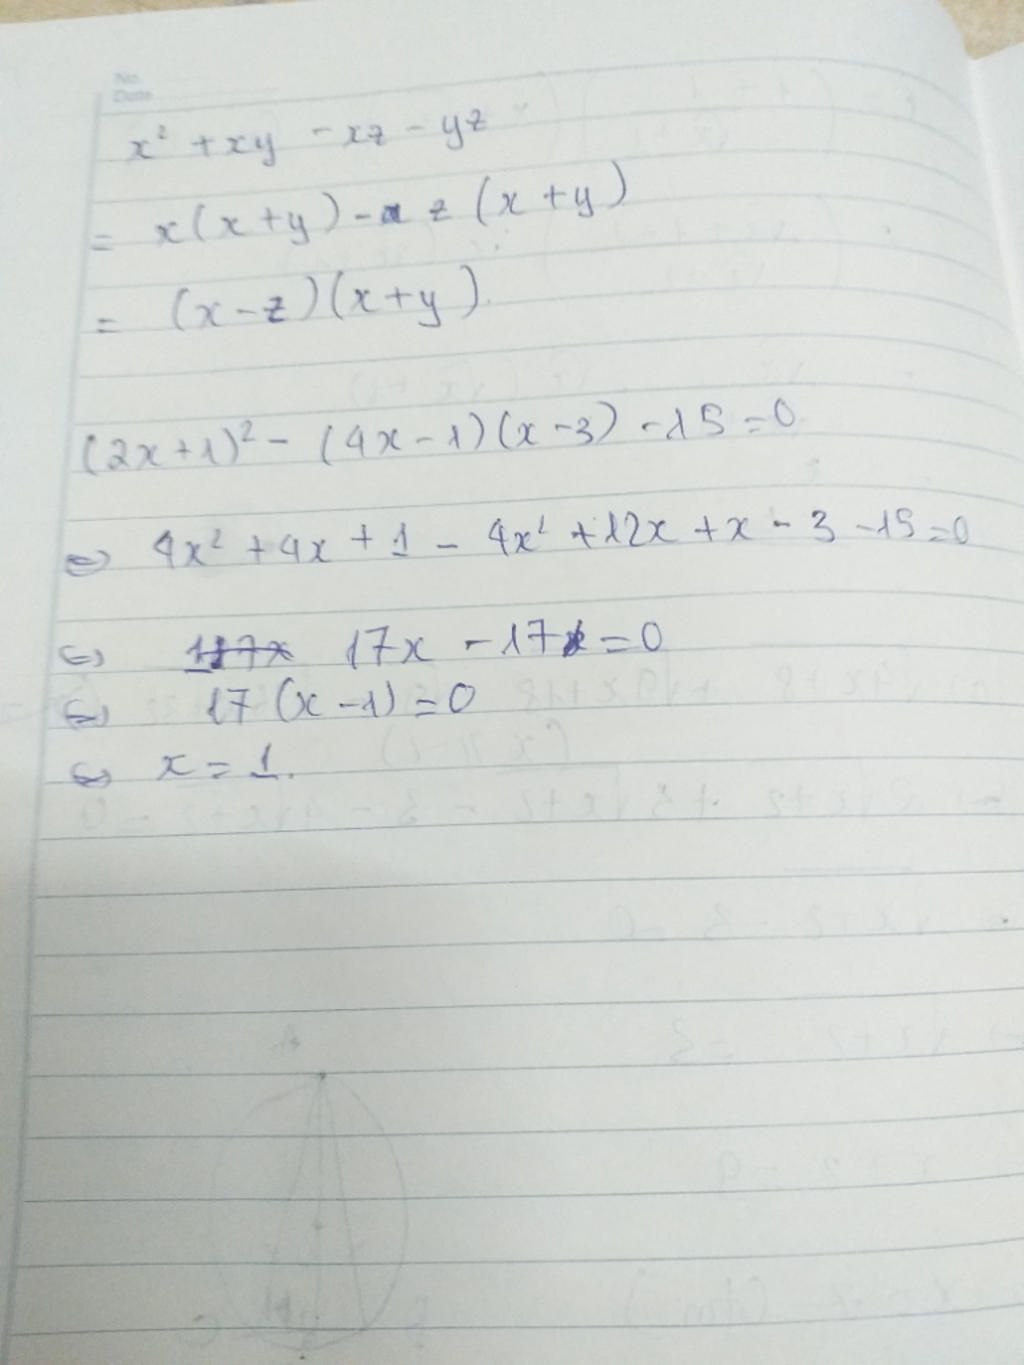 No.
Date
x² + xy - xz - yz
= x(x+y) - z(x+y)
= (x-z)(x+y).
(2x+1)² - (4x-1)(x-3) - 15 = 0
⇔ 4x² + 4x + 1 - 4x² + 12x + x - 3 - 15 = 0
⇔ 17x - 17 = 0
⇔ 17(x-1) = 0
⇔ x = 1.